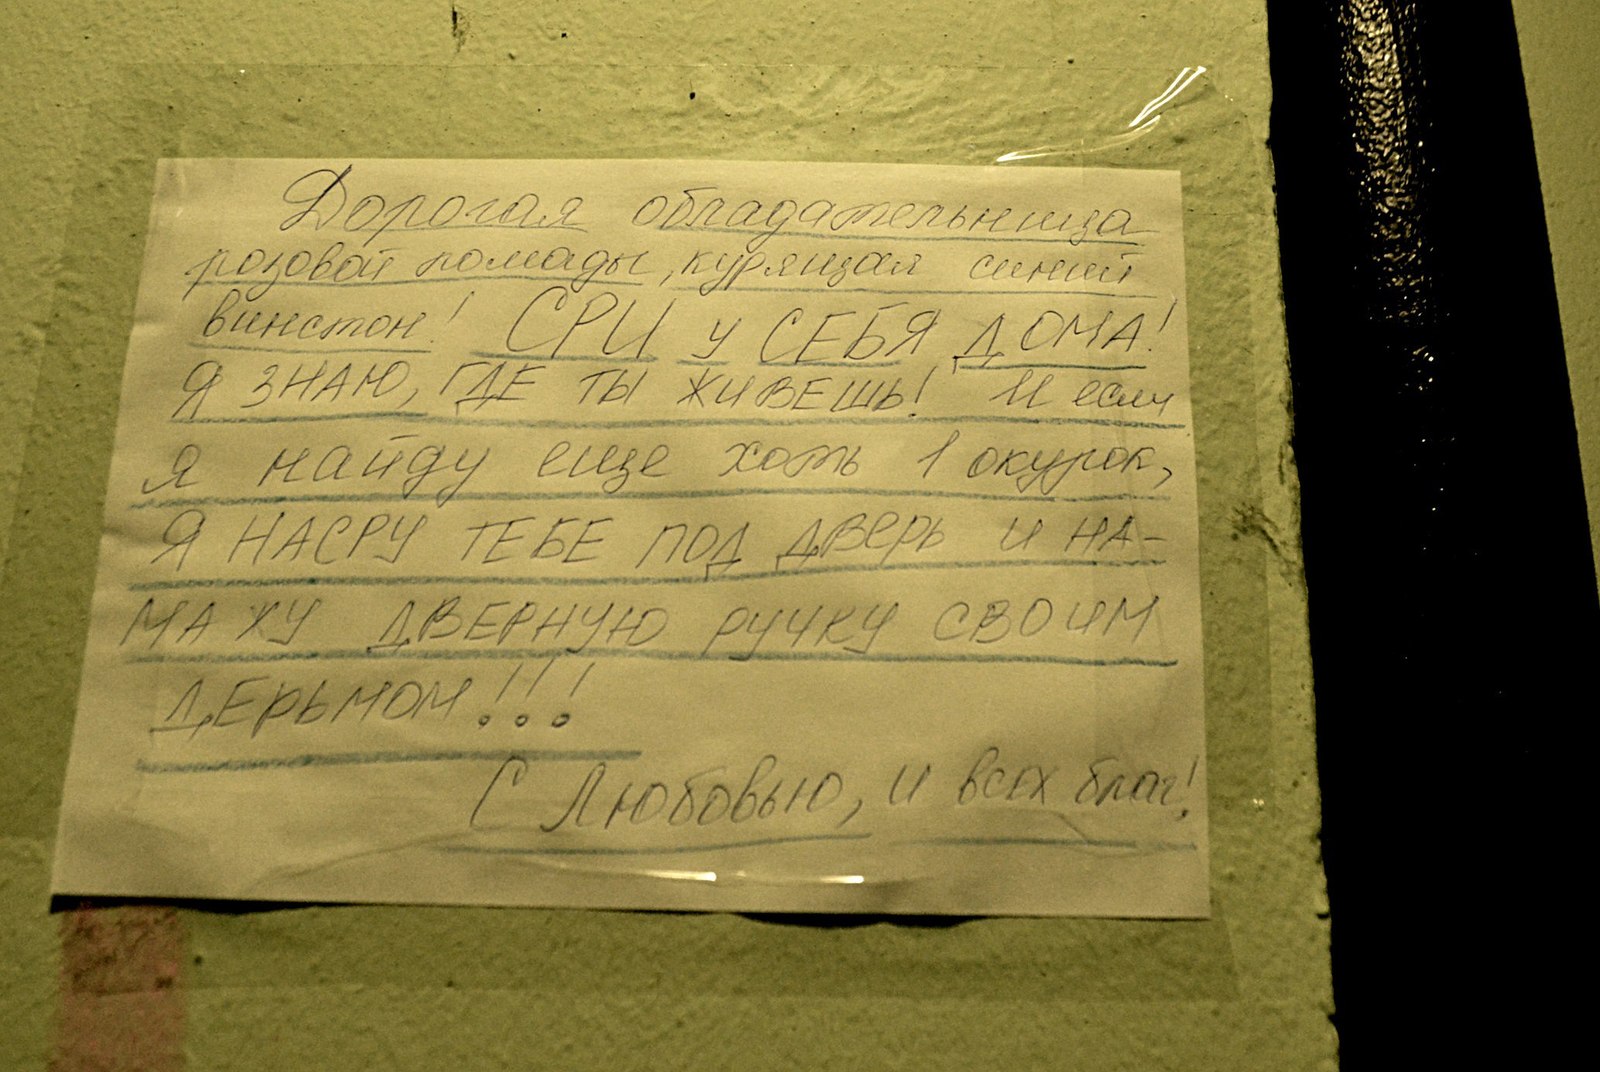 Дорогая обладательница
розовой помады, курящая синий
винстон! СРИ У СЕБЯ ДОМА!
Я ЗНАЮ, ГДЕ ТЫ ЖИВЕШЬ! И если
я найду еще хоть 1 окурок,
Я НАСРУ ТЕБЕ ПОД ДВЕРЬ И НА-
МАЖУ ДВЕРНУЮ РУЧКУ СВОИМ
ДЕРЬМОМ!!!
С Любовью, и всех благ!